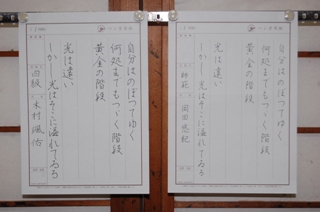 自分はのぼつてゆく
何処までもつゞく階段
黄金の階段
光は遠い
しかし光はそこに溢れてゐる
四級 木村
自分はのぼつてゆく
何処までもつゞく階段
黄金の階段
光は遠い
しかし光はそこに溢れてゐる
師範 岡田